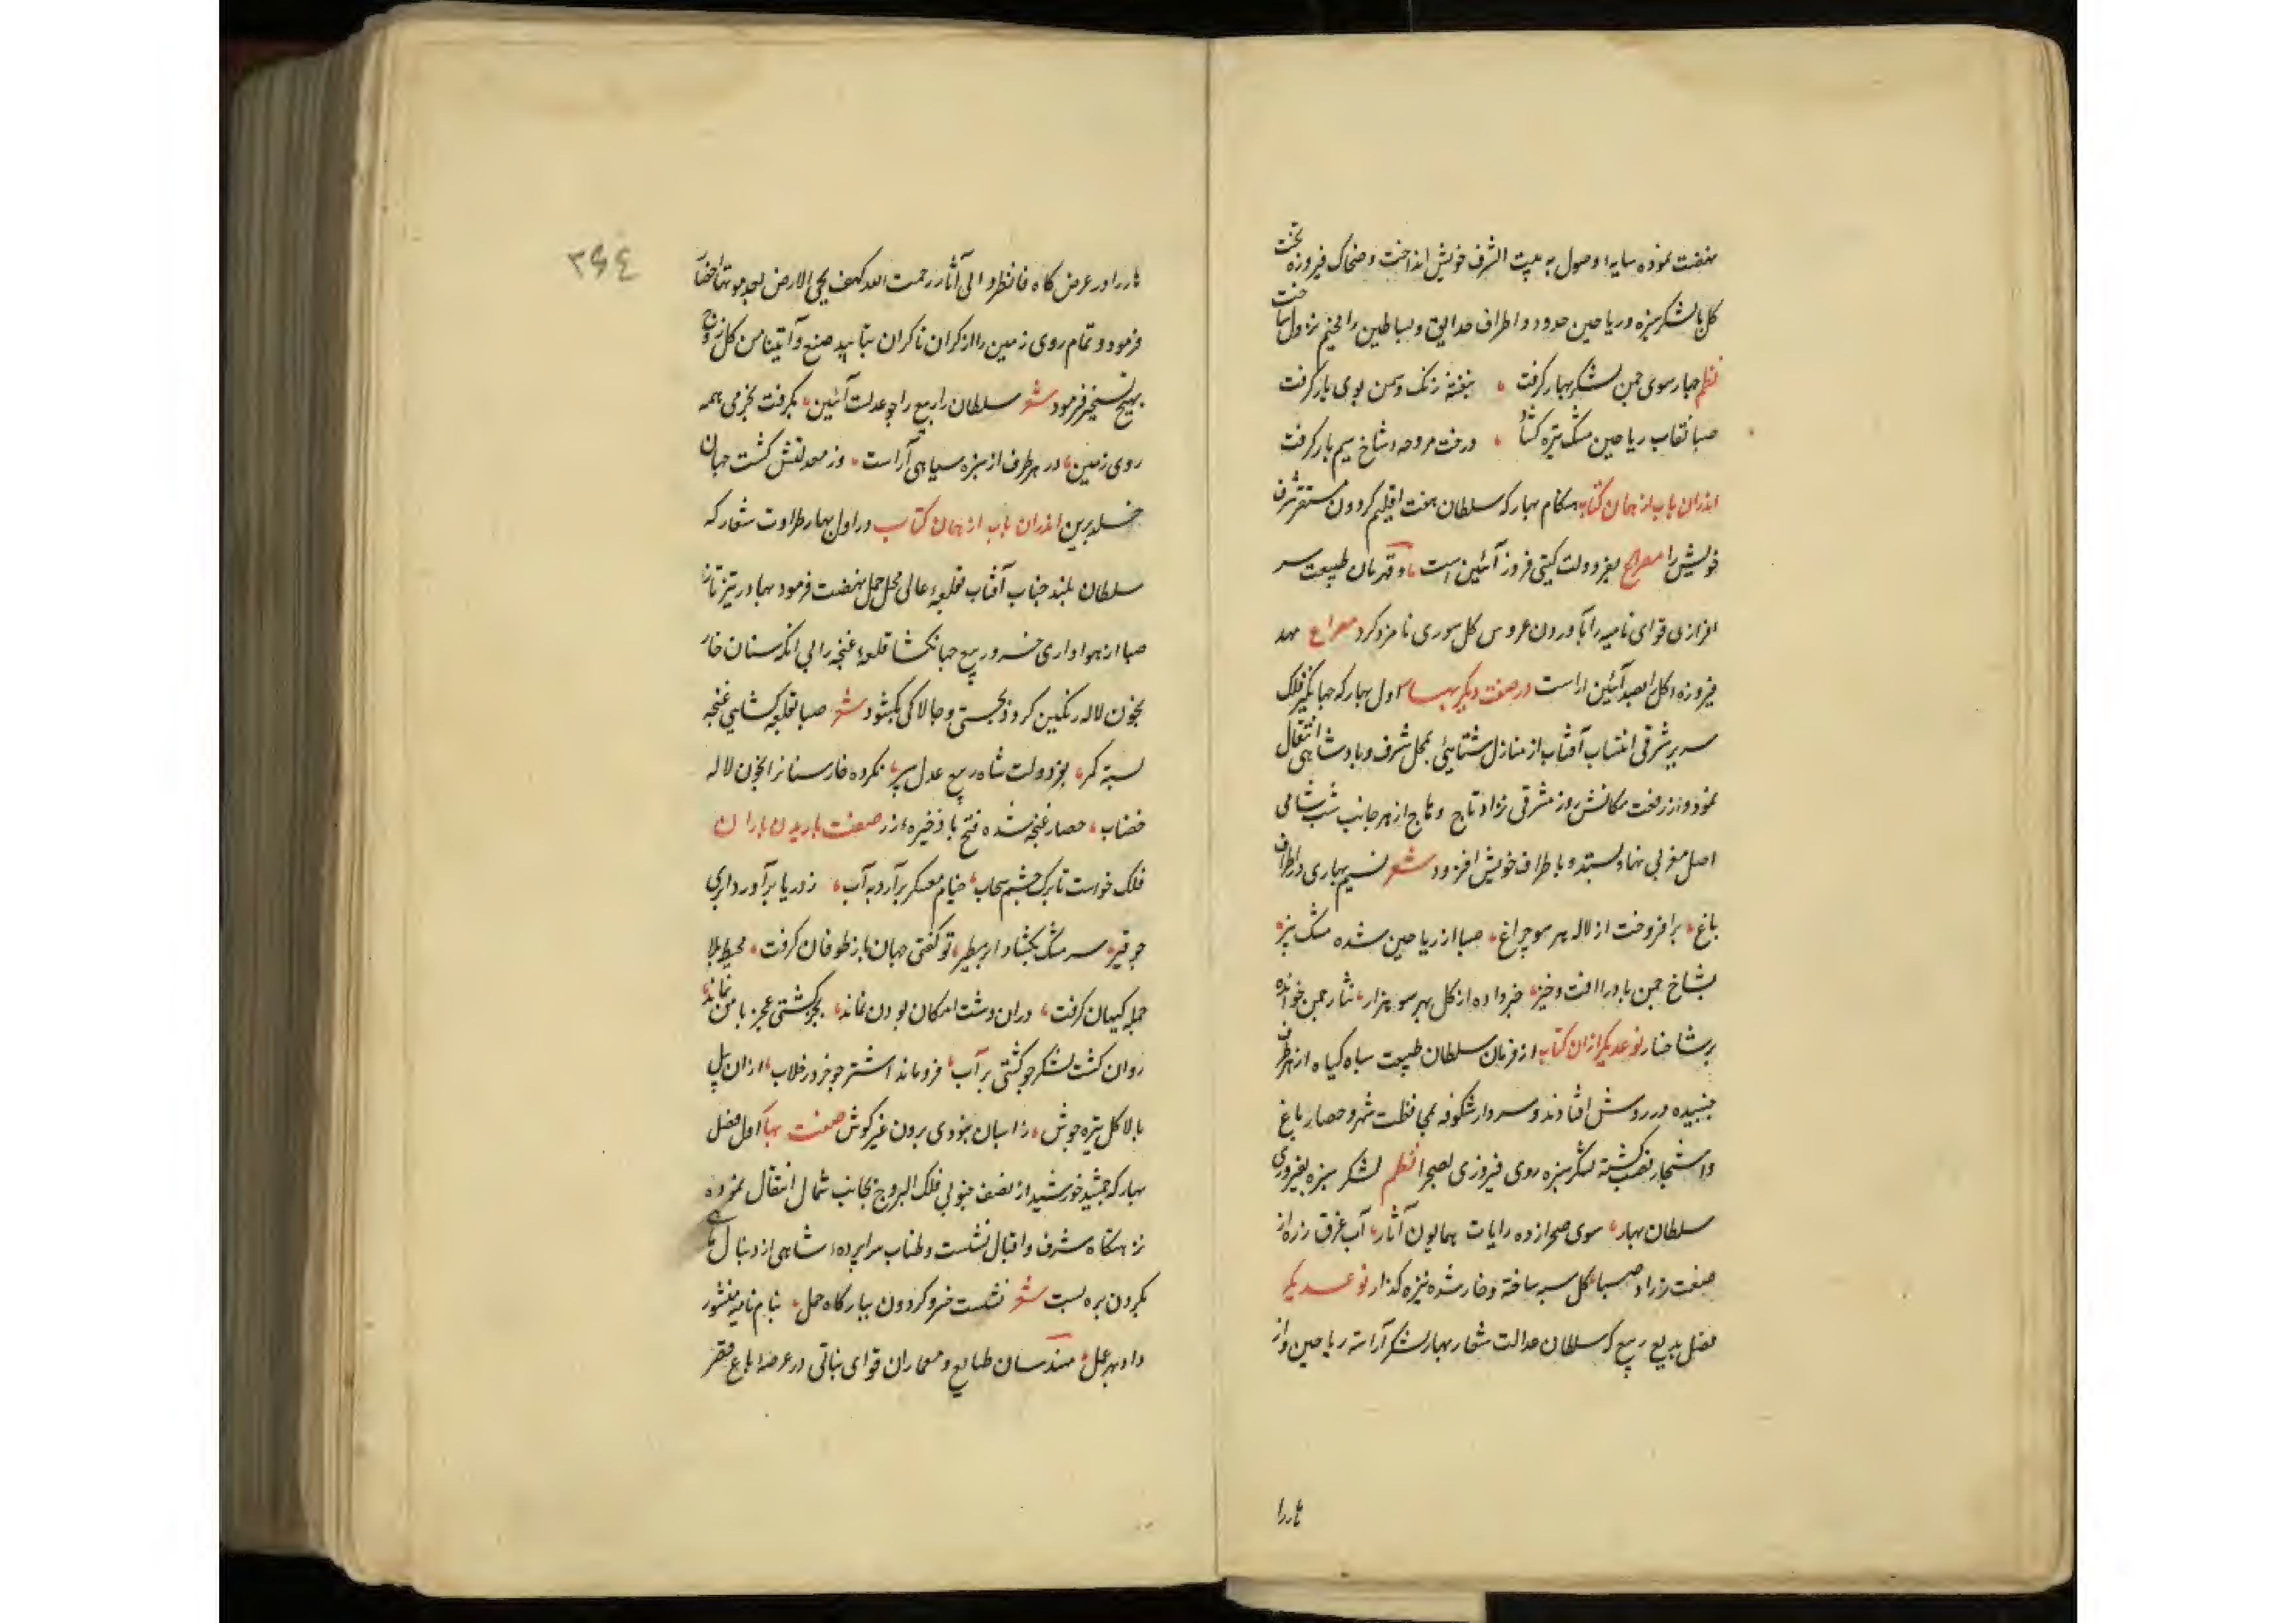 نهضت نموده سایهٔ وصول به بیت الشرف خویش انداخت و ضحاک فیروزه تخت
کل با لشکر سبزه و ریاحین حدود و اطراف حدایق و بساطین را مخیم نزول ساخت
نظم چهار سوی چمن لشکر بهار کرفت ، بنفشه رنک و سمن بوی یار کرفت
صبا نقاب ریاحین مشک بیزه کشاد ، درخت مروحه شاخ سیم بار کرفت
اندران باب از همان کتاب هنکام بهار که سلطان هفت اقلیم کردون مستقر شرف
خویش را مصراع بفر و دولت کیتی فروز آئین است ، و قهرمان طبیعت سر
افراز لی قوای نامیه را بآوردن عروس کل سوری نامزد کرد مصراع مهد
فیروزه کل را بصد آئین اراست در صفت دیکر بهار اول بهار که جهانکیر فلک
سریر شرقی انتساب آفتاب از منازل شتایی بمحل شرف و بادشاهی انتقال
نمود و از رفعت مکانش روز مشرقی نژاد تاج و تاج از هر جانب شب شامی
اصل مغربی نهاد بستده با طراف خویش افزود شعر نسیم بهاری در اطراف
باغ ، برافروخت از لاله هر سو چراغ ، صبا از ریاحین شده مشک بیز
بشاخ چمن باد را افت و خیز ، خبر داده از کل بهر سو هزار ، نثار چمن خوانده
بر شاخسار نوعدیکر ازان کتاب از فرمان سلطان طبیعت سپاه کیاه از هر طرف
جنبیده در روش افتادند و سردار شکوفه بمحافظت شهر و حصار باغ
و اشجار نصب کشته لشکر سبزه روی فیروزی بصحرا نظم لشکر سبزه بفیروزی
سلطان بهار ، سوی صحرا زده رایات همایون آثار ، آب غرق زره از
صنعت زراد صبا ، کل سپر ساخته و خار شده نیزه کذار نوعدیکر
فصل بدیع ربیع که سلطان عدالت شعار بهار لشکر آراسته ریاحین و از
هار را
٣٩٤
هار را در عرض کاه فانظروا الی آثار رحمت الله کیف یحی الارض بعد موتها احضار
فرمود و تمام روی زمین را از کران تا کران بتایید صنع و آتینا من کل زوج
بهیج تسخیر فرمود شعر سلطان را ربیع را چو عدلت آئین ، بکرفت بخرمی همه
روی زمین ، در هر طرف از سبزه سپاهی آراست ، وز معدلتش کشت جهان
خلد برین اندران باب از همان کتاب در اول بهار طراوت شعار که
سلطان بلند جناب آفتاب قلعهٔ عالی محل حمل نهضت فرمود بهادر تیز تاز
صبا از هواداری خسرو ربیع جهانکشا قلعه غنچه را بی آنکه سنان خار
بخون لاله رنکین کرد و بچستی و چالاکی بکشود شعر صبا قلعه کشایی غنچه
بسته کمر ، بفر دولت شاه ربیع عدل سپر ، نکرده خار سنانرا بخون لاله
خضاب ، حصار غنچه شده فتح با ذخیره زر صفت باریدن باران
فلک خواست تا برکشد چشم سحاب ، خیام معسکر برآرد به آب ، ز دریا برآورد ابری
چو قیر ، سر مشک بکشاد ابر مطیر ، تو کفتی جهان باز طوفان کرفت ، محیط بلا
جمله کیهان کرفت ، دران دشت امکان بودن نماند ، بجز کشتی عجز با من نماند
روان کشت لشکر چو کشتی بر آب ، فرو مانده اشتر چو خر در خلاب ، ازان پیل
بالا کل تیره جوش ، ز اسبان نبودی برون غیر کوش صفت بهار اول فصل
بهار که جمشید خورشید از نصف جنوبی فلک البروج بجانب شمال انتقال نموده
نزهتکاه شرف و اقبال نشست و طناب سراپردهٔ شاهی از دنبال
بکردن بره بست شعر نشست خسرو کردون ببارکاه حمل ، بنام نامیه منشور
داد بهر عمل ، مهندسان طبایع و معماران قوای نباتی در عرصه باغ قصر